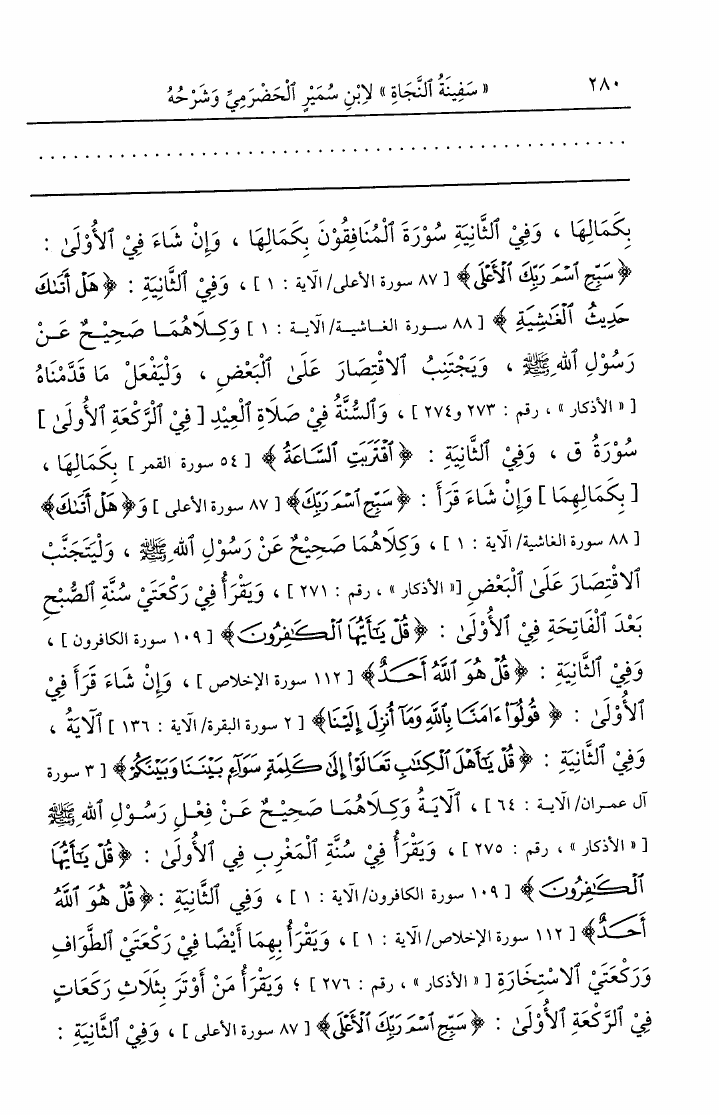 ٢٨٠ « سَفِينَةُ ٱلنَّجَاةِ » لِابْنِ سُمَيْرٍ ٱلْحَضْرَمِيِّ وَشَرْحُهُ
بِكَمَالِهَا ، وَفِيْ ٱلثَّانِيَةِ سُوْرَةَ ٱلْمُنَافِقُوْنَ بِكَمَالِهَا ، وَإِنْ شَاءَ فِيْ ٱلأُوْلَىٰ :
﴿ سَبِّحِ ٱسْمَ رَبِّكَ ٱلْأَعْلَى ﴾ [ ٨٧ سورة الأعلى/ الآية : ١ ] ، وَفِيْ ٱلثَّانِيَةِ : ﴿ هَلْ أَتَىٰكَ
حَدِيثُ ٱلْغَٰشِيَةِ ﴾ [ ٨٨ سورة الغاشية/ الآية : ١ ] وَكِلَاهُمَا صَحِيْحٌ عَنْ
رَسُوْلِ ٱللهِ ﷺ ، وَيَجْتَنِبُ ٱلاقْتِصَارَ عَلَىٰ ٱلْبَعْضِ ، وَلْيَفْعَلْ مَا قَدَّمْنَاهُ
[ « الأذكار » ، رقم : ٢٧٣ و٢٧٤ ] ، وَٱلسُّنَّةُ فِيْ صَلَاةِ ٱلْعِيْدِ [ فِيْ ٱلرَّكْعَةِ ٱلأُوْلَىٰ ]
سُوْرَةُ ق ، وَفِيْ ٱلثَّانِيَةِ : ﴿ ٱقْتَرَبَتِ ٱلسَّاعَةُ ﴾ [ ٥٤ سورة القمر ] بِكَمَالِهَا ،
[ بِكَمَالِهِمَا ] وَإِنْ شَاءَ قَرَأَ : ﴿ سَبِّحِ ٱسْمَ رَبِّكَ ﴾ [ ٨٧ سورة الأعلى ] وَ﴿ هَلْ أَتَىٰكَ ﴾
[ ٨٨ سورة الغاشية/ الآية : ١ ] ، وَكِلَاهُمَا صَحِيْحٌ عَنْ رَسُوْلِ ٱللهِ ﷺ ، وَلْيَتَجَنَّبْ
ٱلاقْتِصَارَ عَلَىٰ ٱلْبَعْضِ [ « الأذكار » ، رقم : ٢٧١ ] ، وَيَقْرَأُ فِيْ رَكْعَتَيْ سُنَّةِ ٱلصُّبْحِ
بَعْدَ ٱلْفَاتِحَةِ فِيْ ٱلأُوْلَىٰ : ﴿ قُلْ يَٰٓأَيُّهَا ٱلْكَٰفِرُونَ ﴾ [ ١٠٩ سورة الكافرون ] ،
وَفِيْ ٱلثَّانِيَةِ : ﴿ قُلْ هُوَ ٱللَّهُ أَحَدٌ ﴾ [ ١١٢ سورة الإخلاص ] ، وَإِنْ شَاءَ قَرَأَ فِيْ
ٱلأُوْلَىٰ : ﴿ قُولُوٓا۟ ءَامَنَّا بِٱللَّهِ وَمَآ أُنزِلَ إِلَيْنَا ﴾ [ ٢ سورة البقرة/ الآية : ١٣٦ ] ٱلآيَةُ ،
وَفِيْ ٱلثَّانِيَةِ : ﴿ قُلْ يَٰٓأَهْلَ ٱلْكِتَٰبِ تَعَالَوْا۟ إِلَىٰ كَلِمَةٍ سَوَآءٍ بَيْنَنَا وَبَيْنَكُمْ ﴾ [ ٣ سورة
آل عمران/ الآية : ٦٤ ] ، ٱلآيَةُ وَكِلَاهُمَا صَحِيْحٌ عَنْ فِعْلِ رَسُوْلِ ٱللهِ ﷺ
[ « الأذكار » ، رقم : ٢٧٥ ] ، وَيَقْرَأُ فِيْ سُنَّةِ ٱلْمَغْرِبِ فِي ٱلأُوْلَىٰ : ﴿ قُلْ يَٰٓأَيُّهَا
ٱلْكَٰفِرُونَ ﴾ [ ١٠٩ سورة الكافرون/ الآية : ١ ] ، وَفِي ٱلثَّانِيَةِ : ﴿ قُلْ هُوَ ٱللَّهُ
أَحَدٌ ﴾ [ ١١٢ سورة الإخلاص/ الآية : ١ ] ، وَيَقْرَأُ بِهِمَا أَيْضًا فِيْ رَكْعَتَيْ ٱلطَّوَافِ
وَرَكْعَتَيْ ٱلاسْتِخَارَةِ [ « الأذكار » ، رقم : ٢٧٦ ] ؛ وَيَقْرَأُ مَنْ أَوْتَرَ بِثَلَاثِ رَكَعَاتٍ
فِيْ ٱلرَّكْعَةِ ٱلأُوْلَىٰ : ﴿ سَبِّحِ ٱسْمَ رَبِّكَ ٱلْأَعْلَى ﴾ [ ٨٧ سورة الأعلى ] ، وَفِيْ ٱلثَّانِيَةِ :